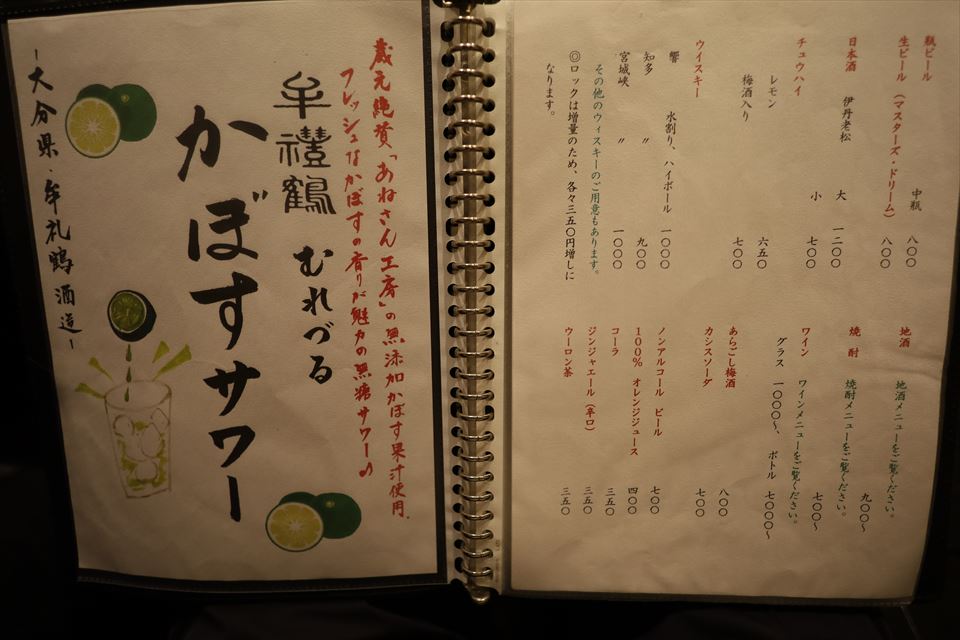 瓶ビール 中瓶 八〇〇
生ビール(マスターズ・ドリーム) 八〇〇
日本酒 伊丹老松 大 一二〇〇
小 七〇〇
チュウハイ
レモン 六五〇
梅酒入り 七〇〇
ウイスキー
響 水割り、ハイボール 一〇〇〇
知多 〃 九〇〇
宮城峡 〃 一〇〇〇
その他のウィスキーのご用意もあります。
◎ロックは増量のため、各々三五〇円増しに
なります。
地酒 地酒メニューをご覧ください。
九〇〇〜
焼酎 焼酎メニューをご覧ください。
七〇〇〜
ワイン ワインメニューをご覧ください。
グラス 一〇〇〇〜、 ボトル 七〇〇〇〜
あらごし梅酒 八〇〇
カシスソーダ 七〇〇
ノンアルコール ビール 七〇〇
100% オレンジジュース 四〇〇
コーラ 三五〇
ジンジャエール(辛口) 三五〇
ウーロン茶 三五〇
蔵元絶賛「あねさん工房」の無添加かぼす果汁使用.
フレッシュなかぼすの香りが魅力の無糖サワー♪
牟禮鶴 むれづる
かぼすサワー
ー大分県・牟礼鶴酒造ー